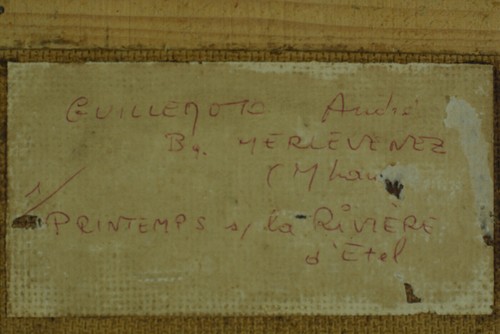 GUILLEMOTO André
By. MERLEVENEZ
(Mban
1/
PRINTEMPS s/ la RIVIÈRE
d'Etel